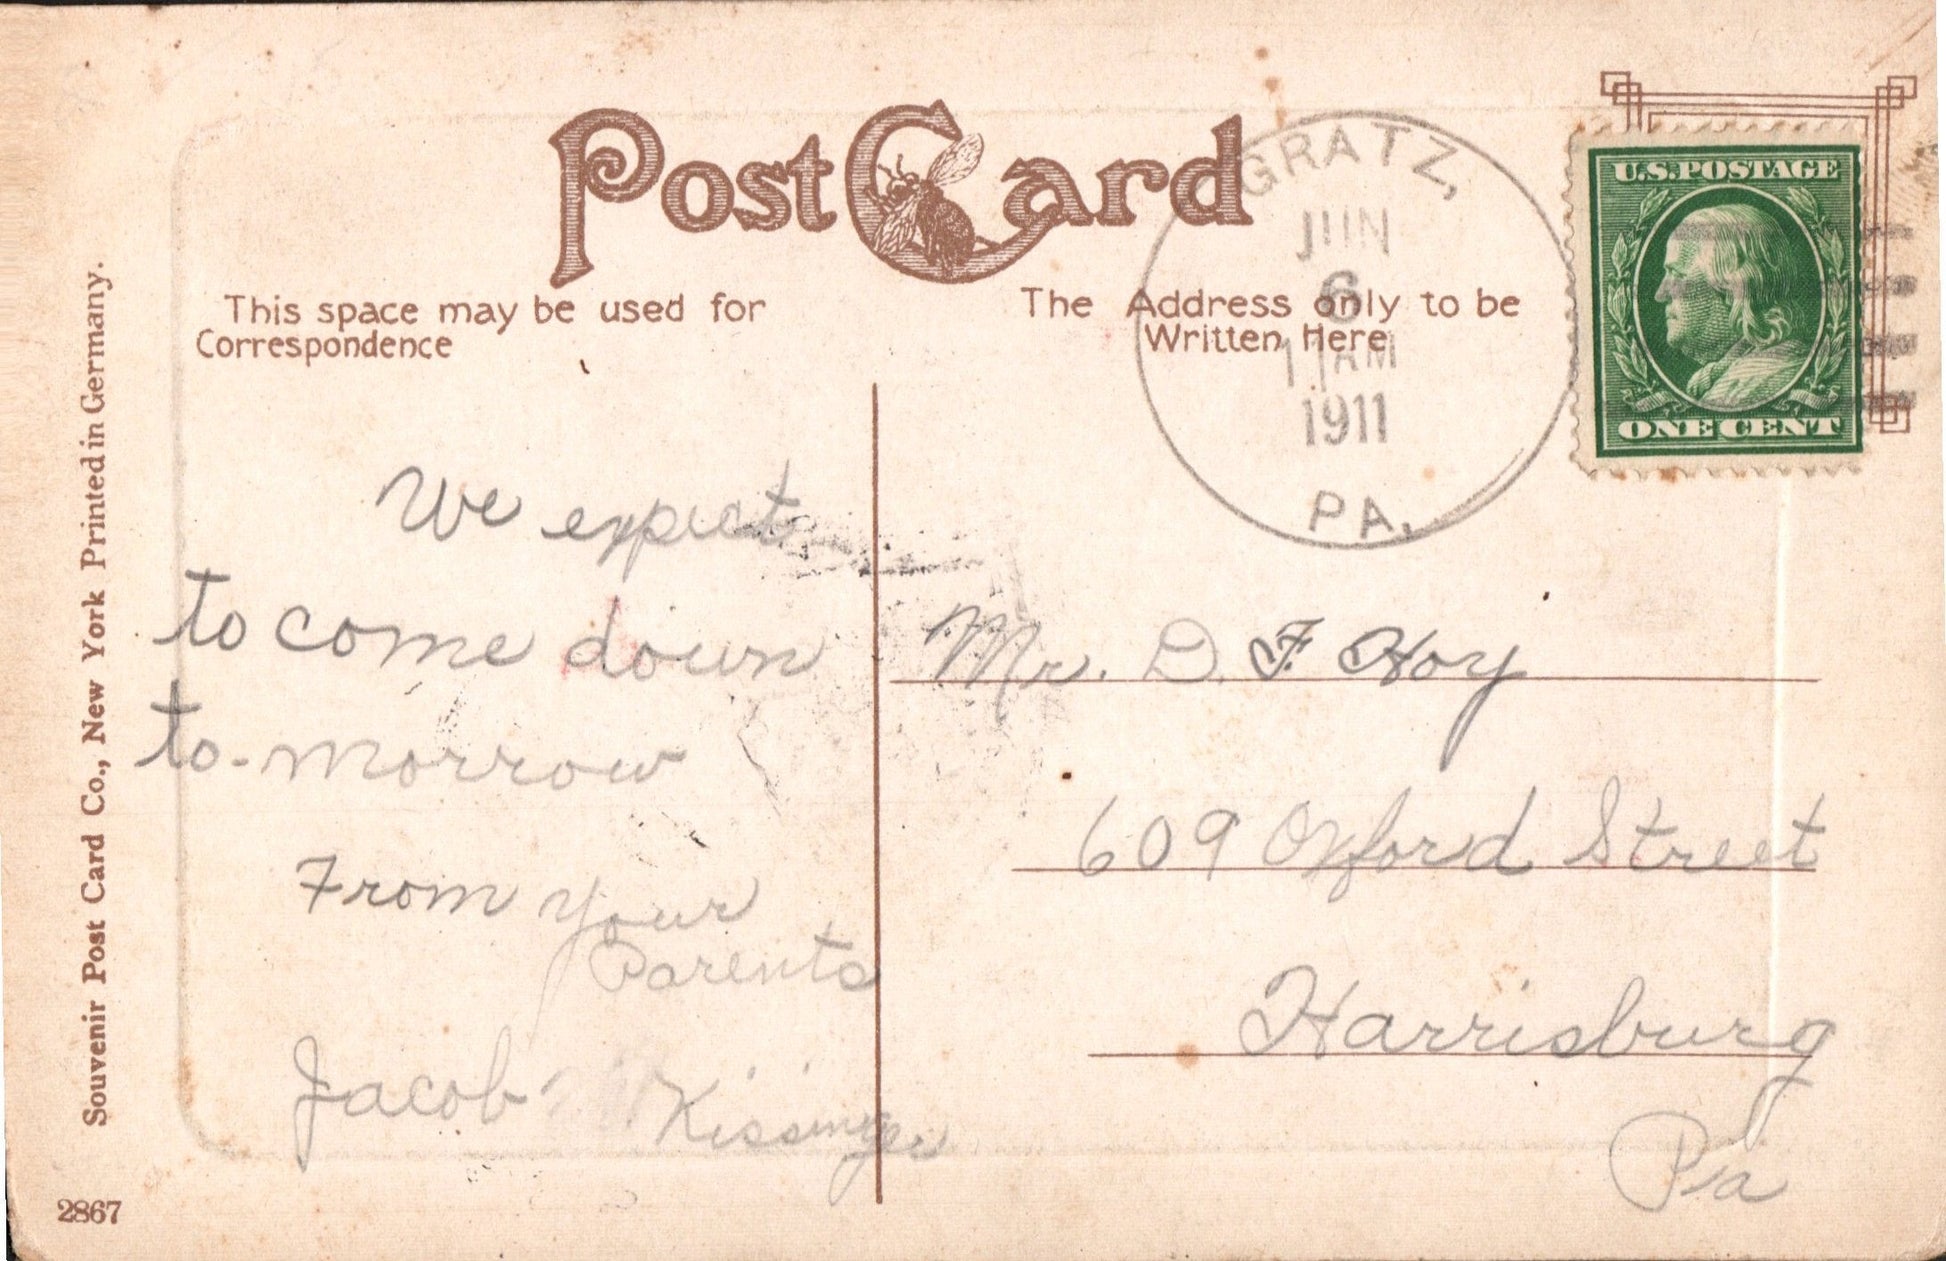 Post Card
This space may be used for
Correspondence
The Address only to be
Written Here
GRATZ,
JUN
6
11 AM
1911
PA.
U.S. POSTAGE
ONE CENT
We expect
to come down
to-morrow
From your
Parents
Jacob Kissinger
Mr. D. F Hoy
609 Oxford Street
Harrisburg
Pa
Souvenir Post Card Co., New York Printed in Germany.
2867